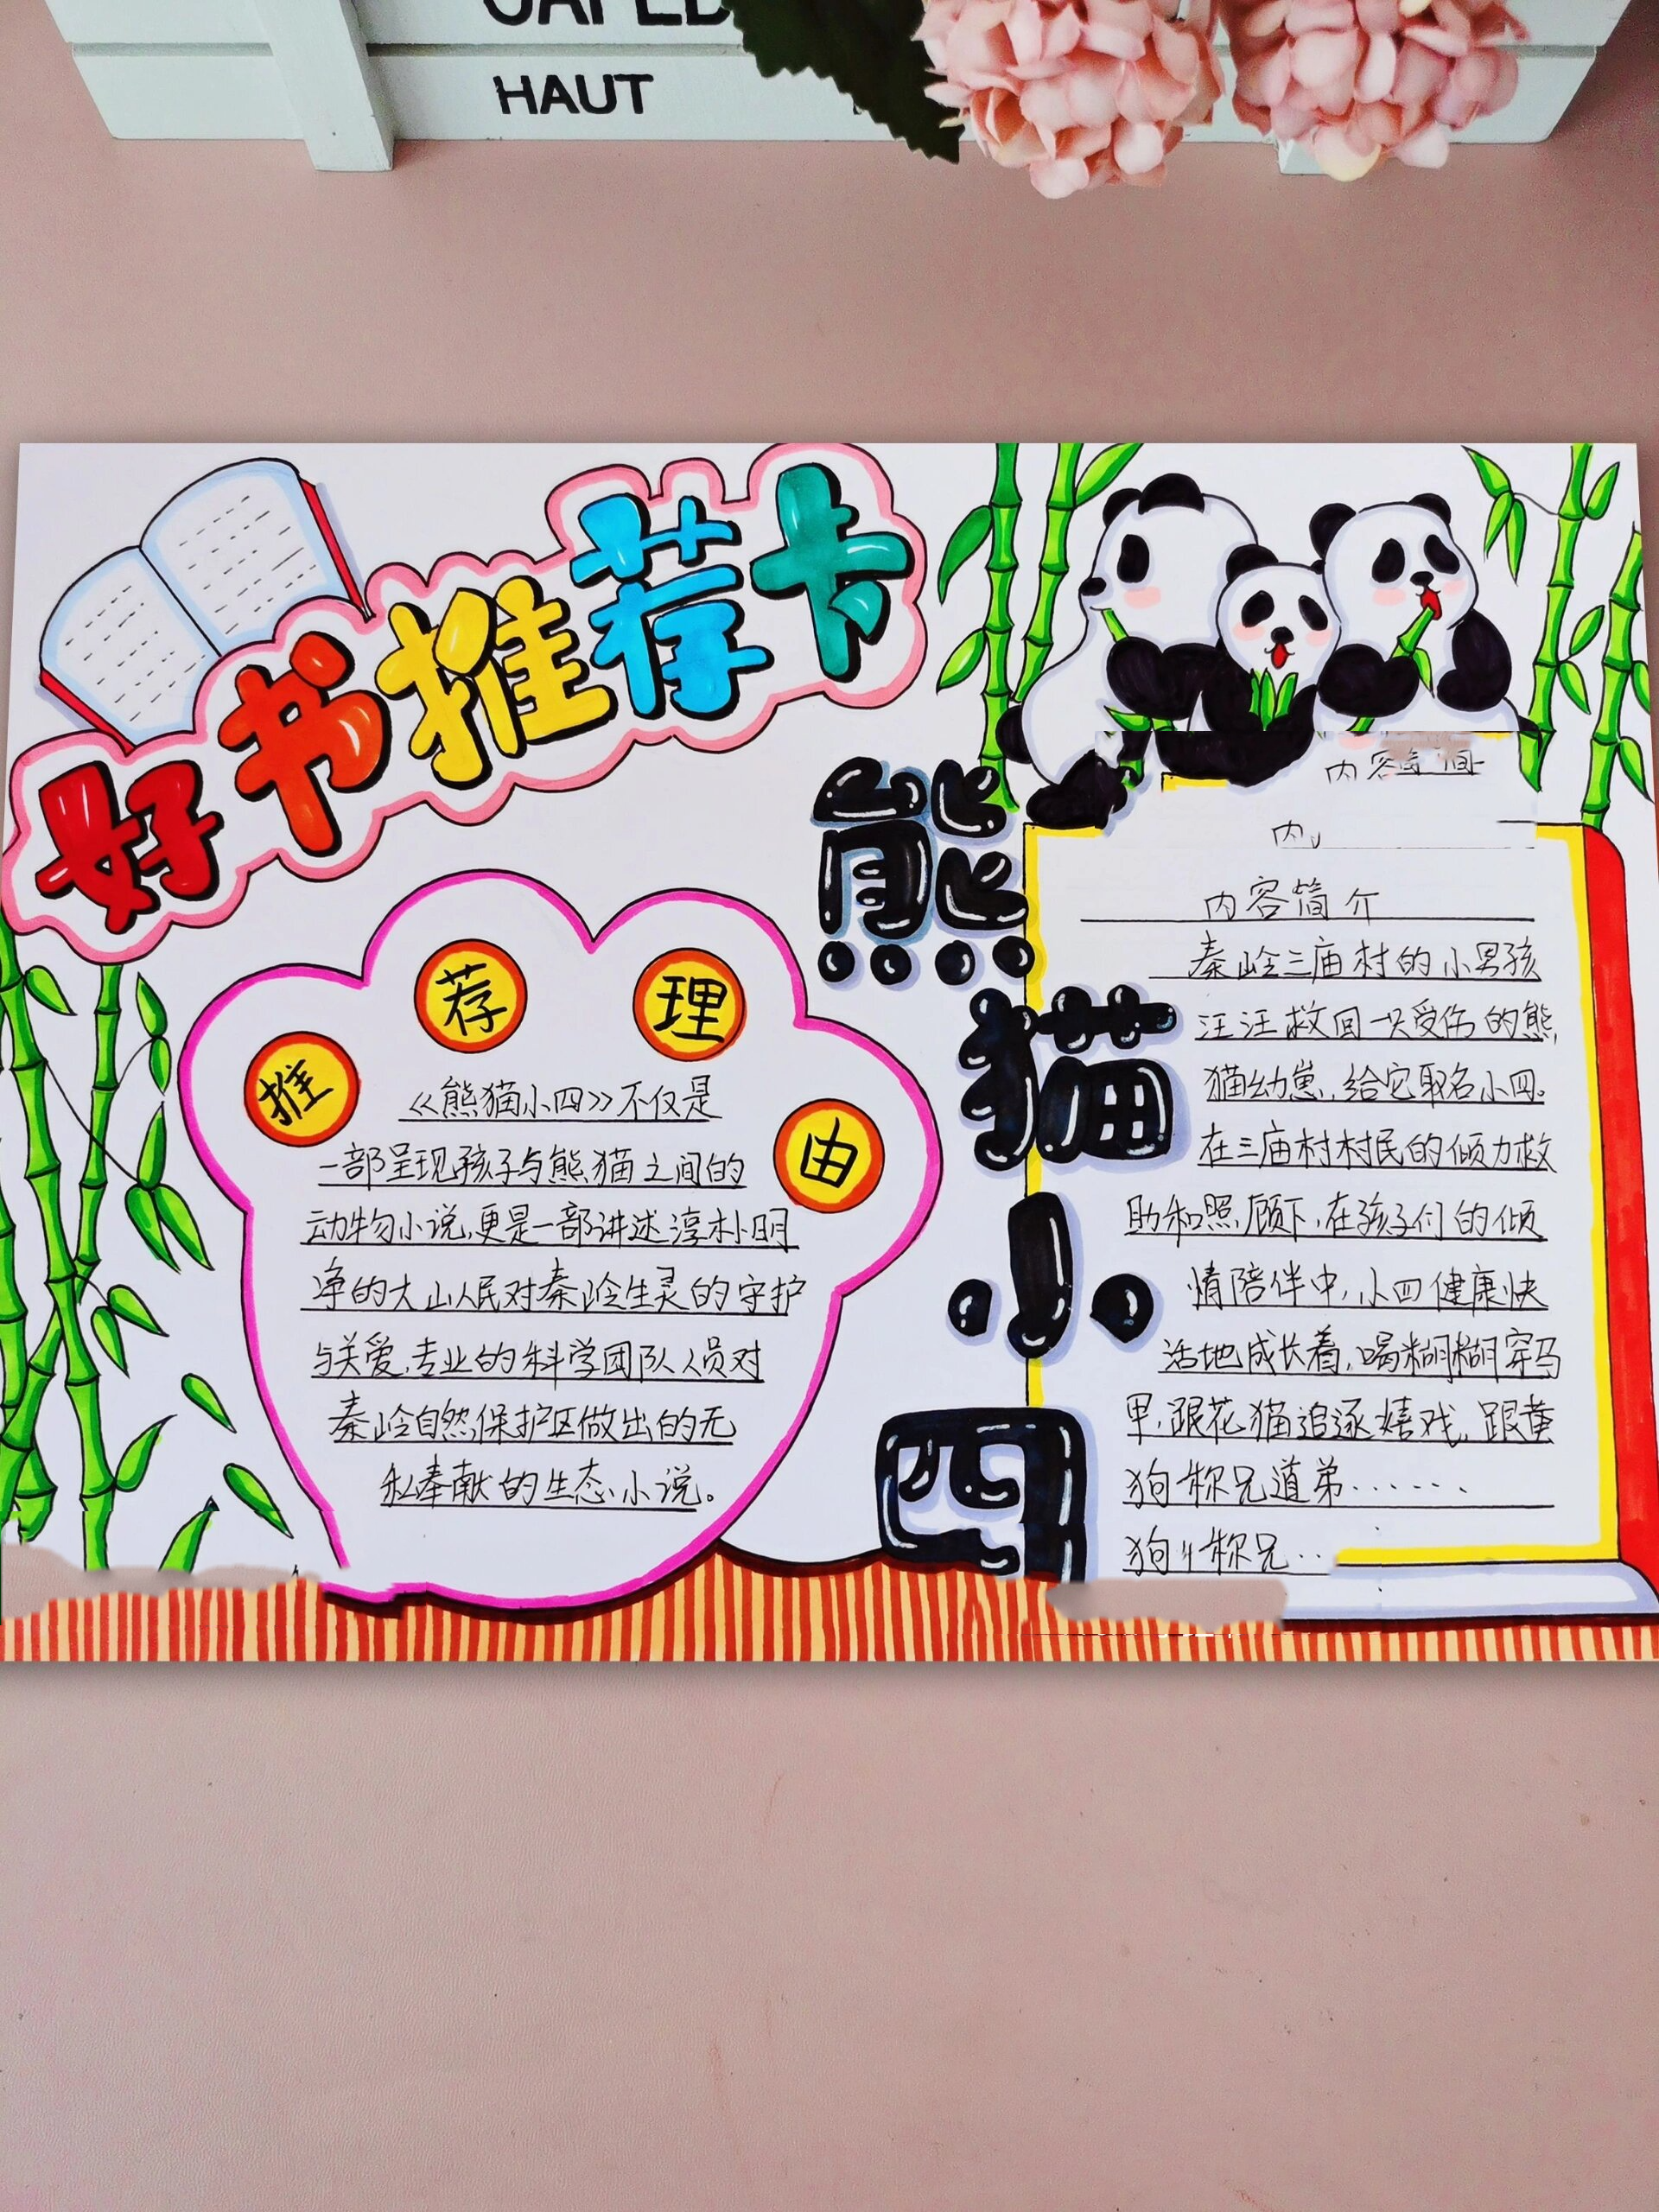 HAUT
好书推荐卡
熊猫小四
推荐理由
《熊猫小四》不仅是
一部呈现孩子与熊猫之间的
动物小说,更是一部讲述淳朴明
净的大山人民对秦岭生灵的守护
与关爱,专业的科学团队人员对
秦岭自然保护区做出的无
私奉献的生态小说。
内容简
内
内容简介
秦岭三庙村的小男孩
汪汪救回一只受伤的熊
猫幼崽,给它取名小四。
在三庙村村民的倾力救
助和照顾下,在孩子们的倾
情陪伴中,小四健康快
活地成长着,喝糊糊穿马
甲,跟花猫追逐嬉戏,跟黄
狗称兄道弟······
狗 称兄··